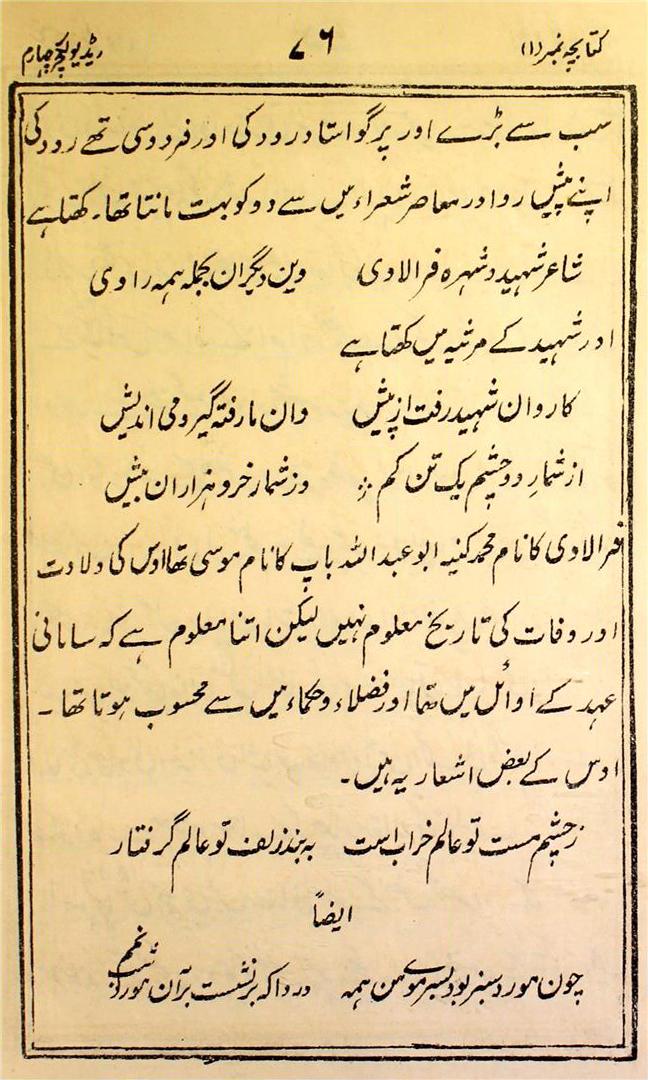 کتابچہ نمبر (۱) ۷۶ ریڈیو لکچر چہارم
سب سے بڑے اور پر گو استاد رودکی اور فردوسی تھے رودکی
اپنے پیش رو اور معاصر شعراء میں سے دو کو بہت مانتا تھا۔ کہتا ہے
شاعر شہید و شہرہ فرالاوی وین دیگران بجملہ ہمہ راوی
اور شہید کے مرثیہ میں کہتا ہے
کاروان شہید رفت از پیش وان ما رفتہ گیر و می اندیش
از شمارِ دو چشم یک تن کم وز شمار خرد ہزاران بیش
فرالاوی کا نام محمد کنیہ ابو عبد اللہ باپ کا نام موسی تھا اوس کی ولادت
اور وفات کی تاریخ معلوم نہیں لیکن اتنا معلوم ہے کہ سامانی
عہد کے اوائل میں تھا اور فضلاء و حکماء میں سے محسوب ہوتا تھا۔
اوس کے بعض اشعار یہ ہیں۔
زچشم مست تو عالم خراب است بہ بند زلف تو عالم گرفتار
ایضاً
چون مورد سبز بود بسر موے من ہمہ دردا کہ بر نشست بر آن مورد